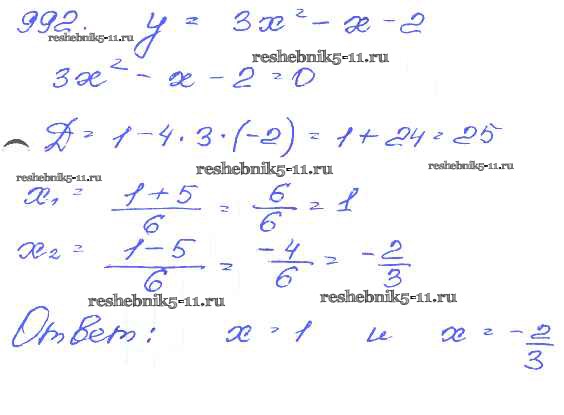 992. y = 3x² - x - 2
reshebnik5-11.ru
reshebnik5-11.ru
3x² - x - 2 = 0
Д = 1 - 4 · 3 · (-2) = 1 + 24 = 25
reshebnik5-11.ru
reshebnik5-11.ru
reshebnik5-11.ru
x₁ = (1 + 5)/6 = 6/6 = 1
x₂ = (1 - 5)/6 = -4/6 = -2/3
reshebnik5-11.ru
reshebnik5-11.ru
Ответ: x = 1 и x = -2/3